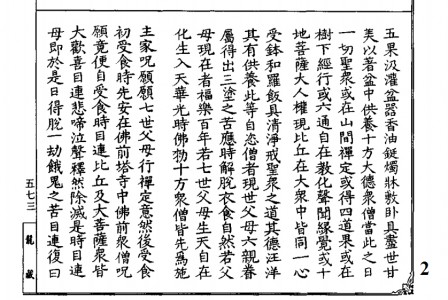 五果汲灌盆器香油錠燭牀敷卧具盡世甘
美以著盆中供養十方大德衆僧當此之日
一切聖衆或在山間禪定或得四道果或在
樹下經行或六通自在教化聲聞緣覺或十
地菩薩大人權現比丘在大衆中皆同一心
受鉢和羅飯具清淨戒聖衆之道其德汪洋
其有供養此等自恣僧者現世父母六親眷
屬得出三塗之苦應時解脫衣食自然若父
母現在者福樂百年若七世父母生天自在
化生入天華光時佛勑十方衆僧皆先爲施
主家呪願願七世父母行禪定意然後受食
初受食時先安在佛前塔寺中佛前衆僧呪
願竟便自受食時目連比丘及大菩薩衆皆
大歡喜目連悲啼泣聲釋然除滅是時目連
母即於是日得脫一劫餓鬼之苦目連復曰
五七三
龍藏
2